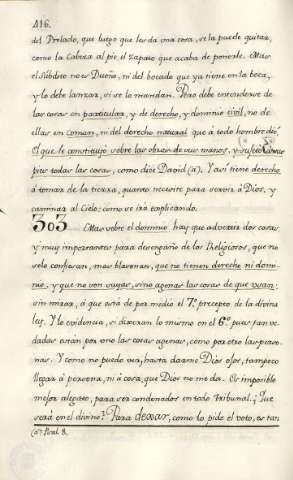 416.
del Prelado, que luego que les da una cosa, se la puede quitar,
como la Cabeza al pie, el zapato que acaba de ponerle. Mas
el Subdito no es Dueño, ni del bocado que ya tiene en la boca,
y lo debe lanzar, si se lo mandan. Pero debe entenderse de
las cosas en particular, y de derecho, y dominio civil, no de
ellas en comun, ni del derecho natural que à todo hombre dió
el que le constituyó sobre las obras de sus manos, y sujetó à sus
pies todas las cosas, como dice David (a). Y asi tiene derecho
à tomar de la tierra, quanto necesite para servir à Dios, y
caminar al Cielo: como se irá explicando.
303 Mas sobre el dominio, hay que advertir dos cosas
y muy importantes para desengaño de los Religiosos, que no
solo confiesan, mas blasonan, que no tienen derecho ni domi-
nio, y que no son suyas, sino agenas las cosas de que usan:
sin mirar, à que está de por medio el 7.º precepto de la divina
ley. Y lo evidencia, si dixeran lo mismo en el 6.º pues tan ve-
dadas estan por uno las cosas agenas, como por otro las perso-
nas. Y como no puedo ver, hasta darme Dios ojos, tampoco
llegar à persona, ni à cosa, que Dios no me da. Es imposible
mejor alegato, para ser condenados en todo Tribunal. ¿Que
será en el divino? Para dexar, como lo pide el voto, es tan
(a) Psal. 8.